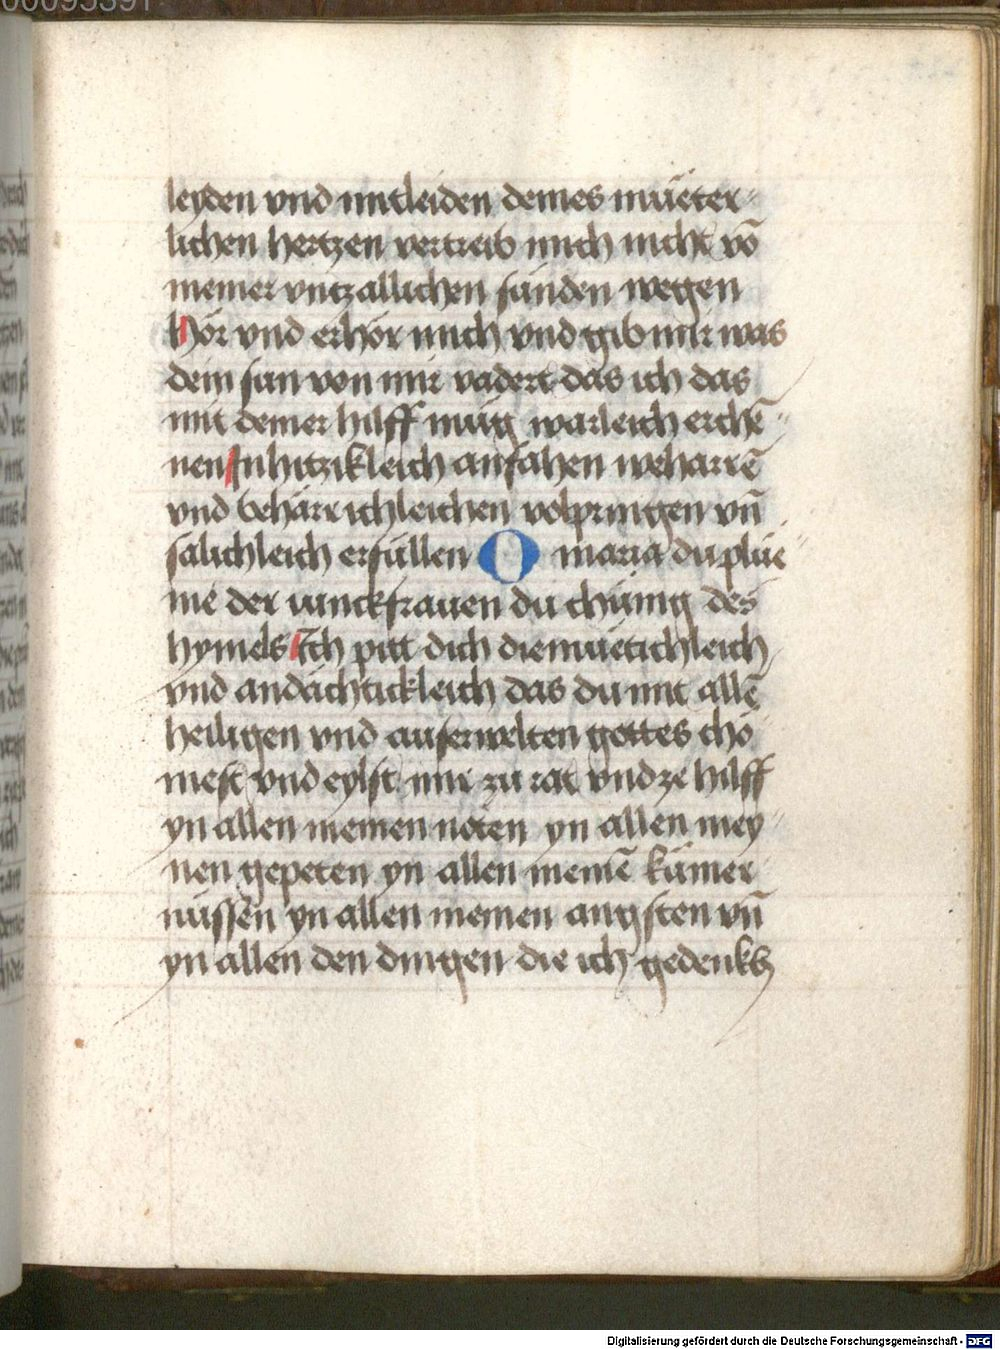 leyden vnd mitleiden deines müeter-
lichen hertzen vertreib mich nicht vō
meiner vntzallichen sünden wegen
hör vnd erhör mich vnd gib mir was
dein sun von mir vadert das ich das
mit deiner hilff müg warleich erchē-
nen Inhitzikleich anfahen weharrē
vnd behärrichleichen volpringen vn̄
sälichleich erfüllen O maria du plüe-
me der iunckfrauen du chünig des
hymels Ich pitt dich diemüetichleich
vnd andächtickleich das du mit allē
heiligen vnd auserwelten gottes chö
mest vnd eylst mir zu rat vnd ze hilff
yn allen meinen nöten yn allen mey-
nen gepeten yn allen meinē kümer
nüssen yn allen meinen angsten vn̄
yn allen den dingen die ich gedenkh
Digitalisierung gefördert durch die Deutsche Forschungsgemeinschaft - DFG